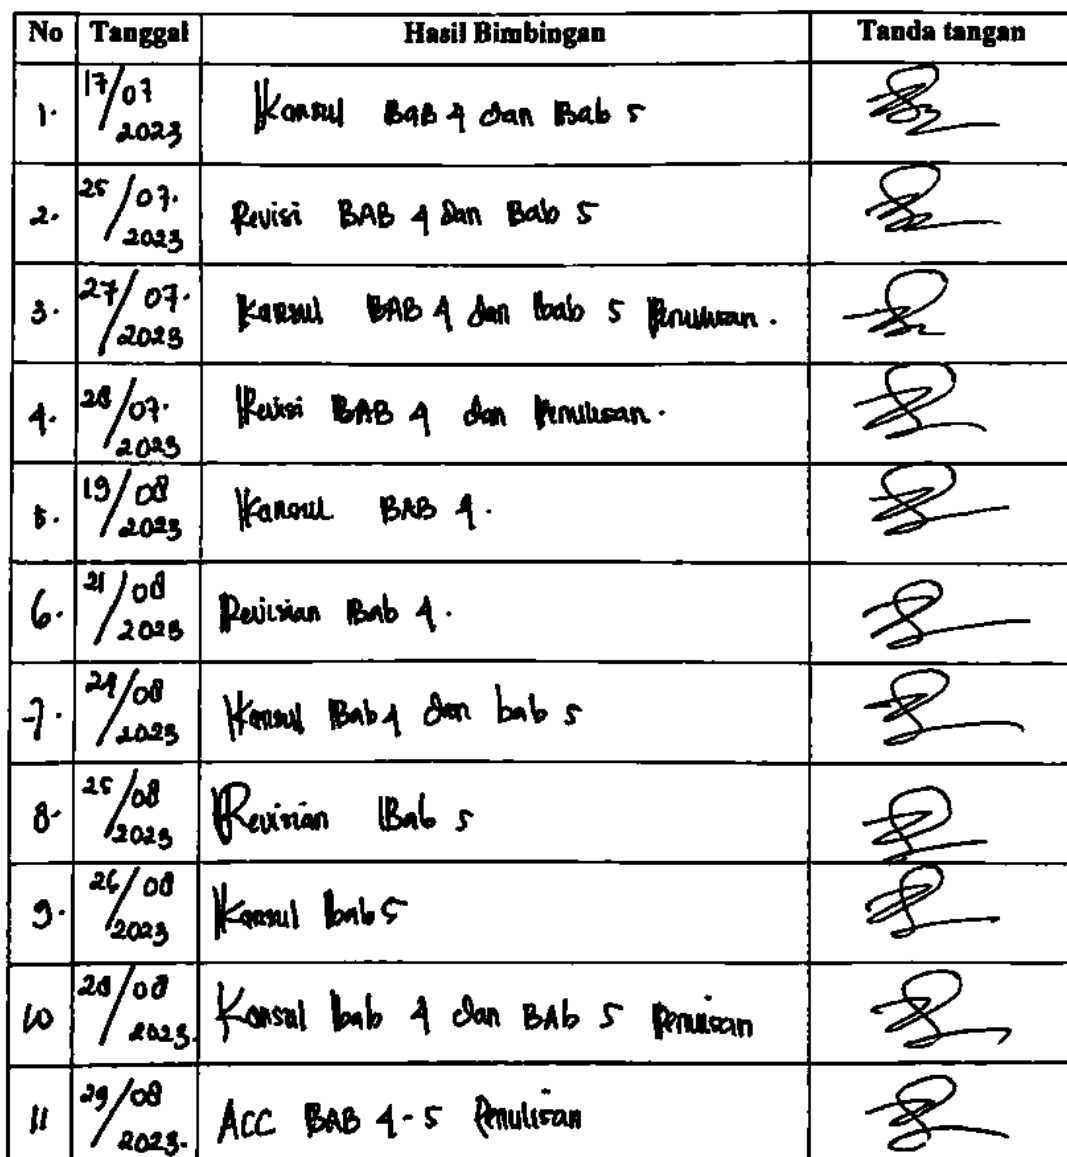 No Tanggal Hasil Bimbingan Tanda tangan
1. 17/07 2023 Konsul BAB 4 dan Bab 5
2. 25/07. 2023 Revisi BAB 4 dan Bab 5
3. 27/07. 2023 Konsul BAB 4 dan bab 5 Penulisan.
4. 28/07. 2023 Revisi BAB 4 dan Penulisan.
5. 19/08 2023 Konsul BAB 4.
6. 21/08 2023 Revisian Bab 4.
7. 24/08 2023 Konsul Bab 4 dan bab 5
8. 25/08 2023 Revisian Bab 5
9. 26/08 2023 Konsul bab 5
10 28/08 2023. Konsul bab 4 dan BAb 5 Penulisan
11 29/08 2023. ACC BAB 4-5 Penulisan